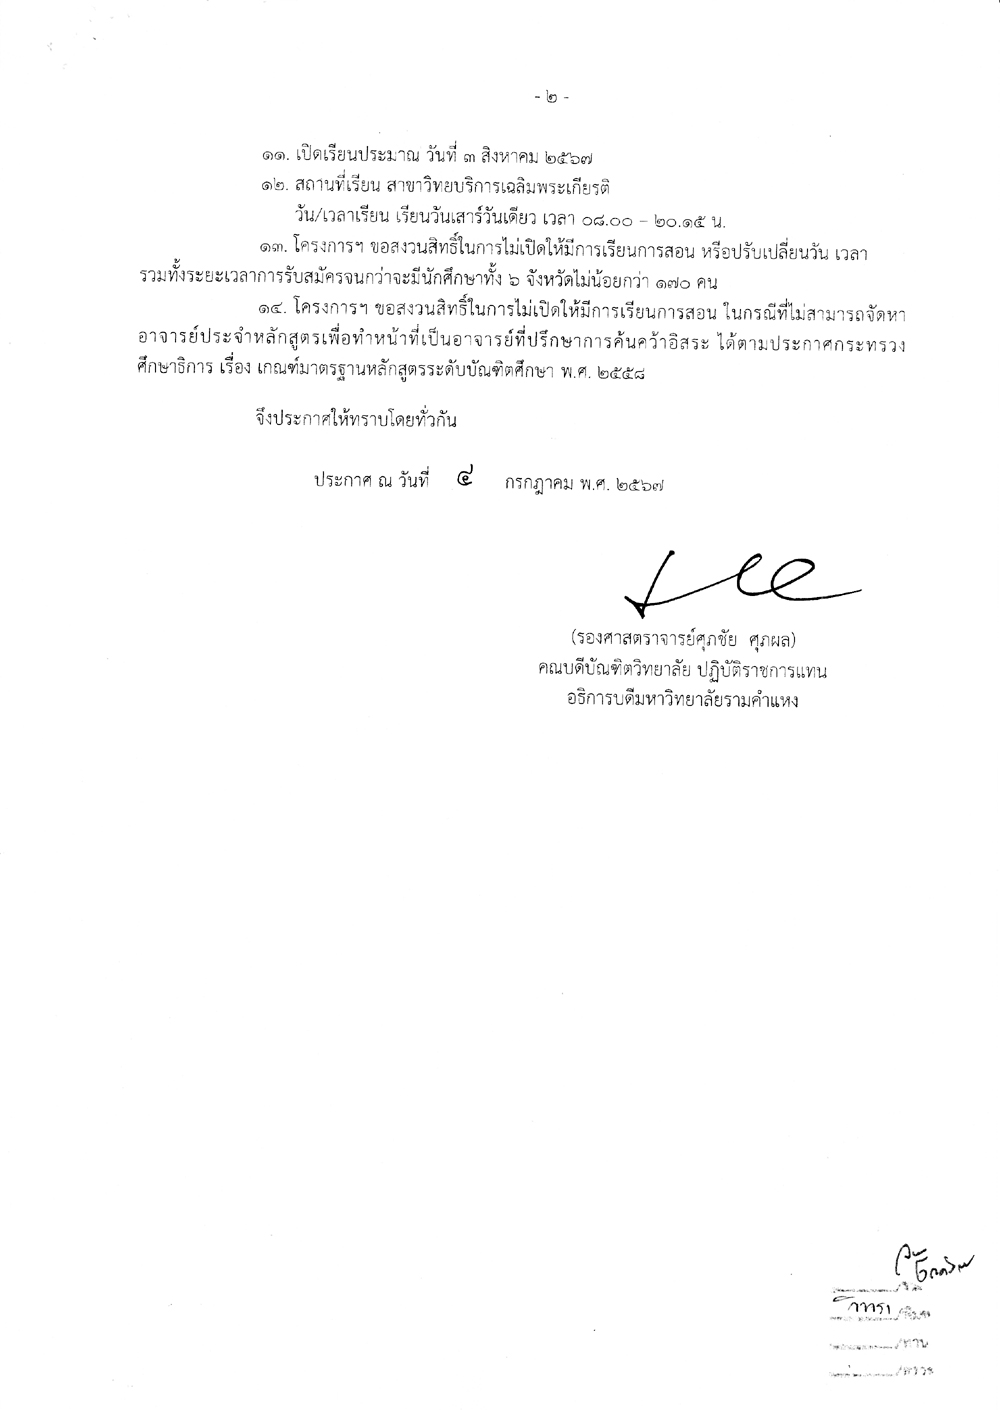 - ๒ -
๑๑. เปิดเรียนประมาณ วันที่ ๓ สิงหาคม ๒๕๖๗
๑๒. สถานที่เรียน สาขาวิทยบริการเฉลิมพระเกียรติ
วัน/เวลาเรียน เรียนวันเสาร์วันเดียว เวลา ๐๘.๐๐ – ๒๐.๑๕ น.
๑๓. โครงการฯ ขอสงวนสิทธิ์ในการไม่เปิดให้มีการเรียนการสอน หรือปรับเปลี่ยนวัน เวลา
รวมทั้งระยะเวลาการรับสมัครจนกว่าจะมีนักศึกษาทั้ง ๖ จังหวัดไม่น้อยกว่า ๑๗๐ คน
๑๔. โครงการฯ ขอสงวนสิทธิ์ในการไม่เปิดให้มีการเรียนการสอน ในกรณีที่ไม่สามารถจัดหา
อาจารย์ประจำหลักสูตรเพื่อทำหน้าที่เป็นอาจารย์ที่ปรึกษาการค้นคว้าอิสระ ได้ตามประกาศกระทรวง
ศึกษาธิการ เรื่อง เกณฑ์มาตรฐานหลักสูตรระดับบัณฑิตศึกษา พ.ศ. ๒๕๕๘
จึงประกาศให้ทราบโดยทั่วกัน
ประกาศ ณ วันที่ ๔ กรกฎาคม พ.ศ. ๒๕๖๗
(รองศาสตราจารย์ศุภชัย ศุภผล)
คณบดีบัณฑิตวิทยาลัย ปฏิบัติราชการแทน
อธิการบดีมหาวิทยาลัยรามคำแหง
/ทาน
/ตรวจ